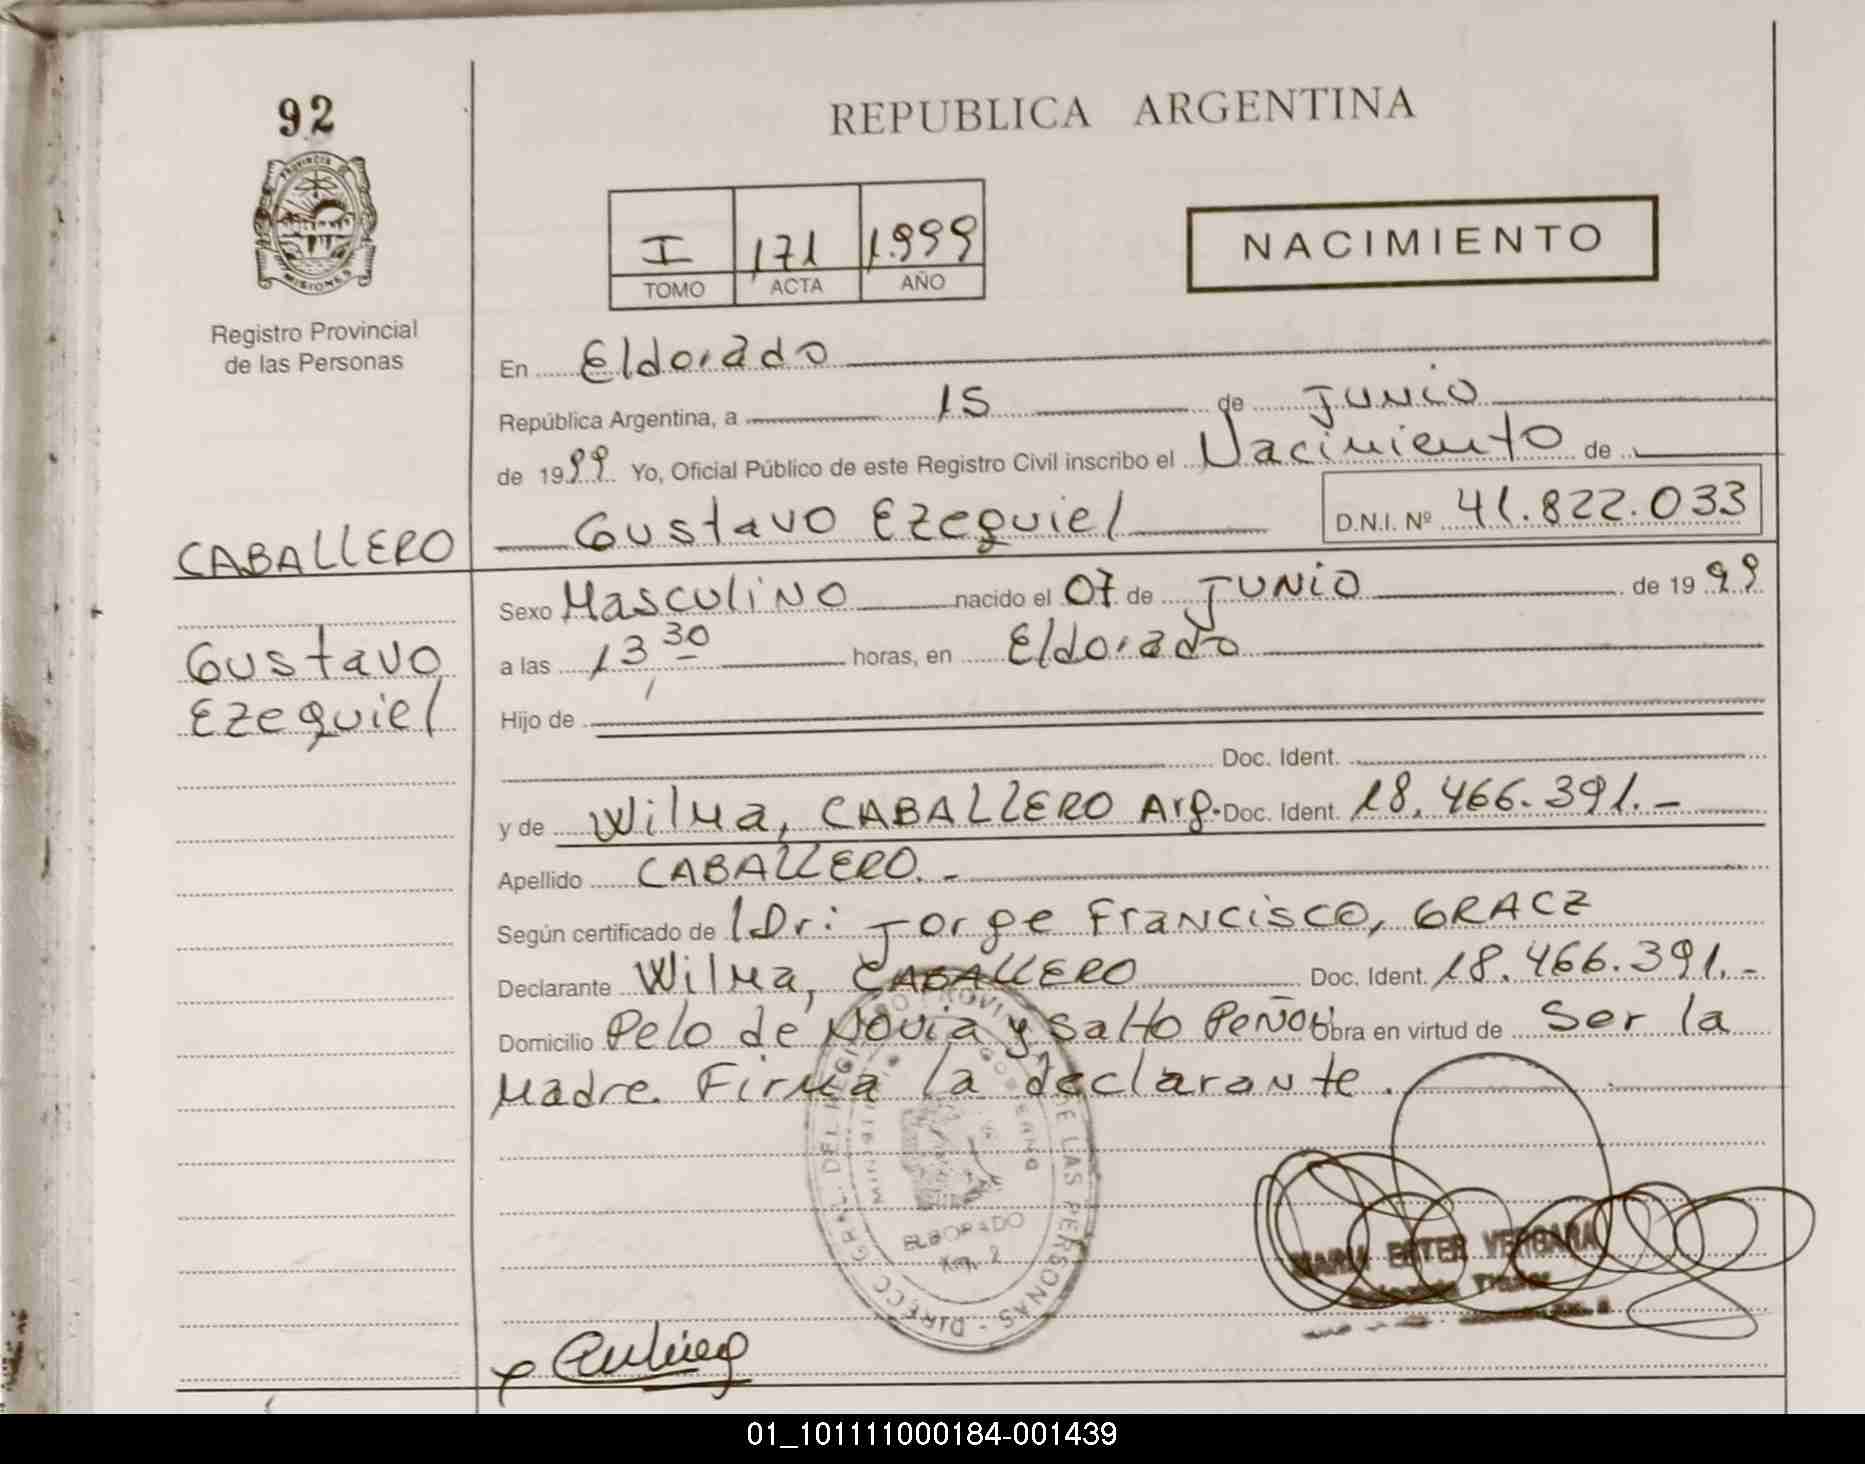 92
PROVINCIA
MISIONES
Registro Provincial
de las Personas
CABALLERO
Gustavo
Ezequiel
REPUBLICA ARGENTINA
I 171 1.999
TOMO ACTA AÑO
NACIMIENTO
En Eldorado
República Argentina, a 15 de Junio
de 1999 Yo, Oficial Público de este Registro Civil inscribo el Nacimiento de
Gustavo Ezequiel D.N.I. Nº 41.822.033
Sexo Masculino nacido el 07 de Junio de 1999
a las 13,30 horas, en Eldorado
Hijo de
Doc. Ident.
y de Wilma, CABALLERO Arg. Doc. Ident. 18.466.391.-
Apellido CABALLERO.-
Según certificado de Dr: Jorge Francisco, GRACZ
Declarante Wilma, CABALLERO Doc. Ident. 18.466.391.-
Domicilio Pelo de Novia y Salto Peñon Obra en virtud de Ser la
Madre. Firma la declarante.
DIRECC. GRAL. DEL REGISTRO PROVINCIAL DE LAS PERSONAS -
MINISTERIO GOBIERNO
ELDORADO
Km. 2
MARIA ESTER VERGARA
01_101111000184-001439